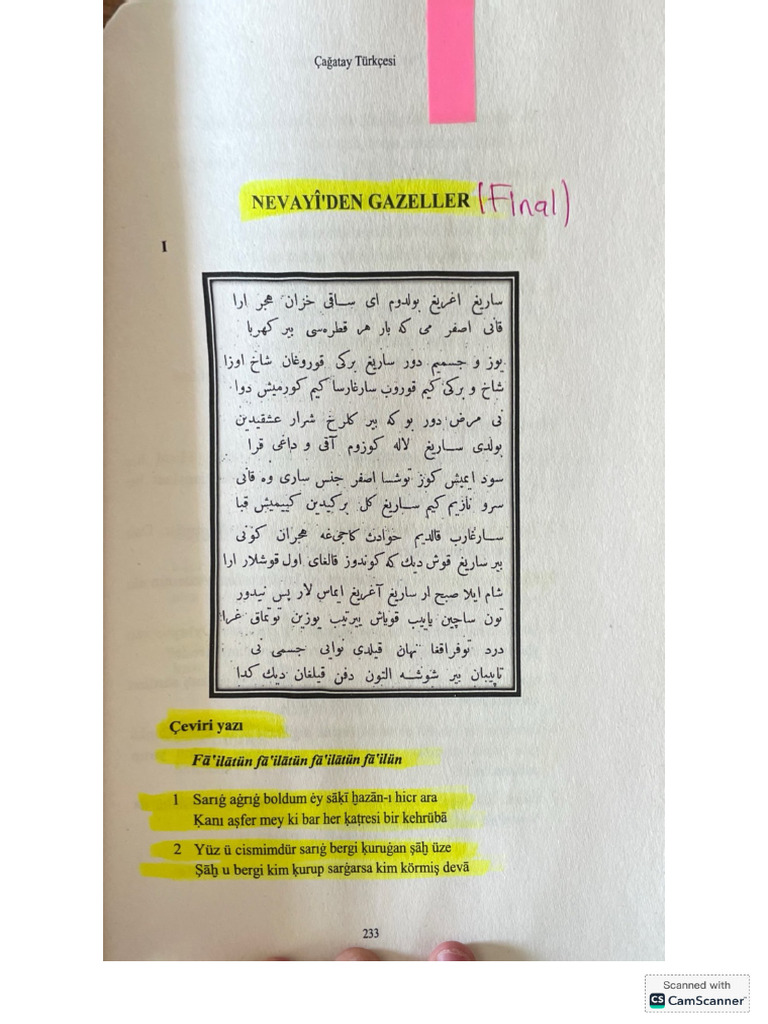 Çağatay Türkçesi
NEVAYÎ'DEN GAZELLER (Final)
I
ساریغ اغریغ بولدوم ای ساقی خزان هجر ارا
قانی اصفر می که بار هر قطره‌سی بیر کهربا
یوز و جسمیم دور ساریغ برکی قوروغان شاخ اوزا
شاخ و برکی کیم قوروب سارغارسا کیم کورمیش دوا
نی مرض دور بو که بیر کلرخ شرار عشقیدین
بولدی ساریغ لاله کوزوم آقی و داغی قرا
سود ایمیش کوز توشسا اصفر جنس ساری وه قانی
سرو نازیم کیم ساریغ کل برکیدین کییمیش قبا
سارغارب قالدیم حوادث کاجی‌غه هجران کونی
بیر ساریغ قوش دیك که کوندوز قالغای اول قوشلار ارا
شام ایلا صبح ار ساریغ آغریغ ایماس لار پس نیدور
تون ساچین یاییب قویاش ییرتیب یوزین توتماق غرا
درد توفراقغا نهان قیلدی نوایی جسمی نی
تاپیبان بیر شوشه التون دفن قیلغان دیك کدا
Çeviri yazı
Fā'ilātün fā'ilātün fā'ilātün fā'ilün
1 Sarıġ aġrıġ boldum ėy sāḳī ḫazān-ı hicr ara
Ḳanı aṣfer mey ki bar her ḳaṭresi bir kehrübā
2 Yüz ü cismimdür sarıġ bergi ḳuruġan şāḫ üze
Şāḫ u bergi kim ḳurup sarġarsa kim körmiş devā
233
Scanned with
CS CamScanner